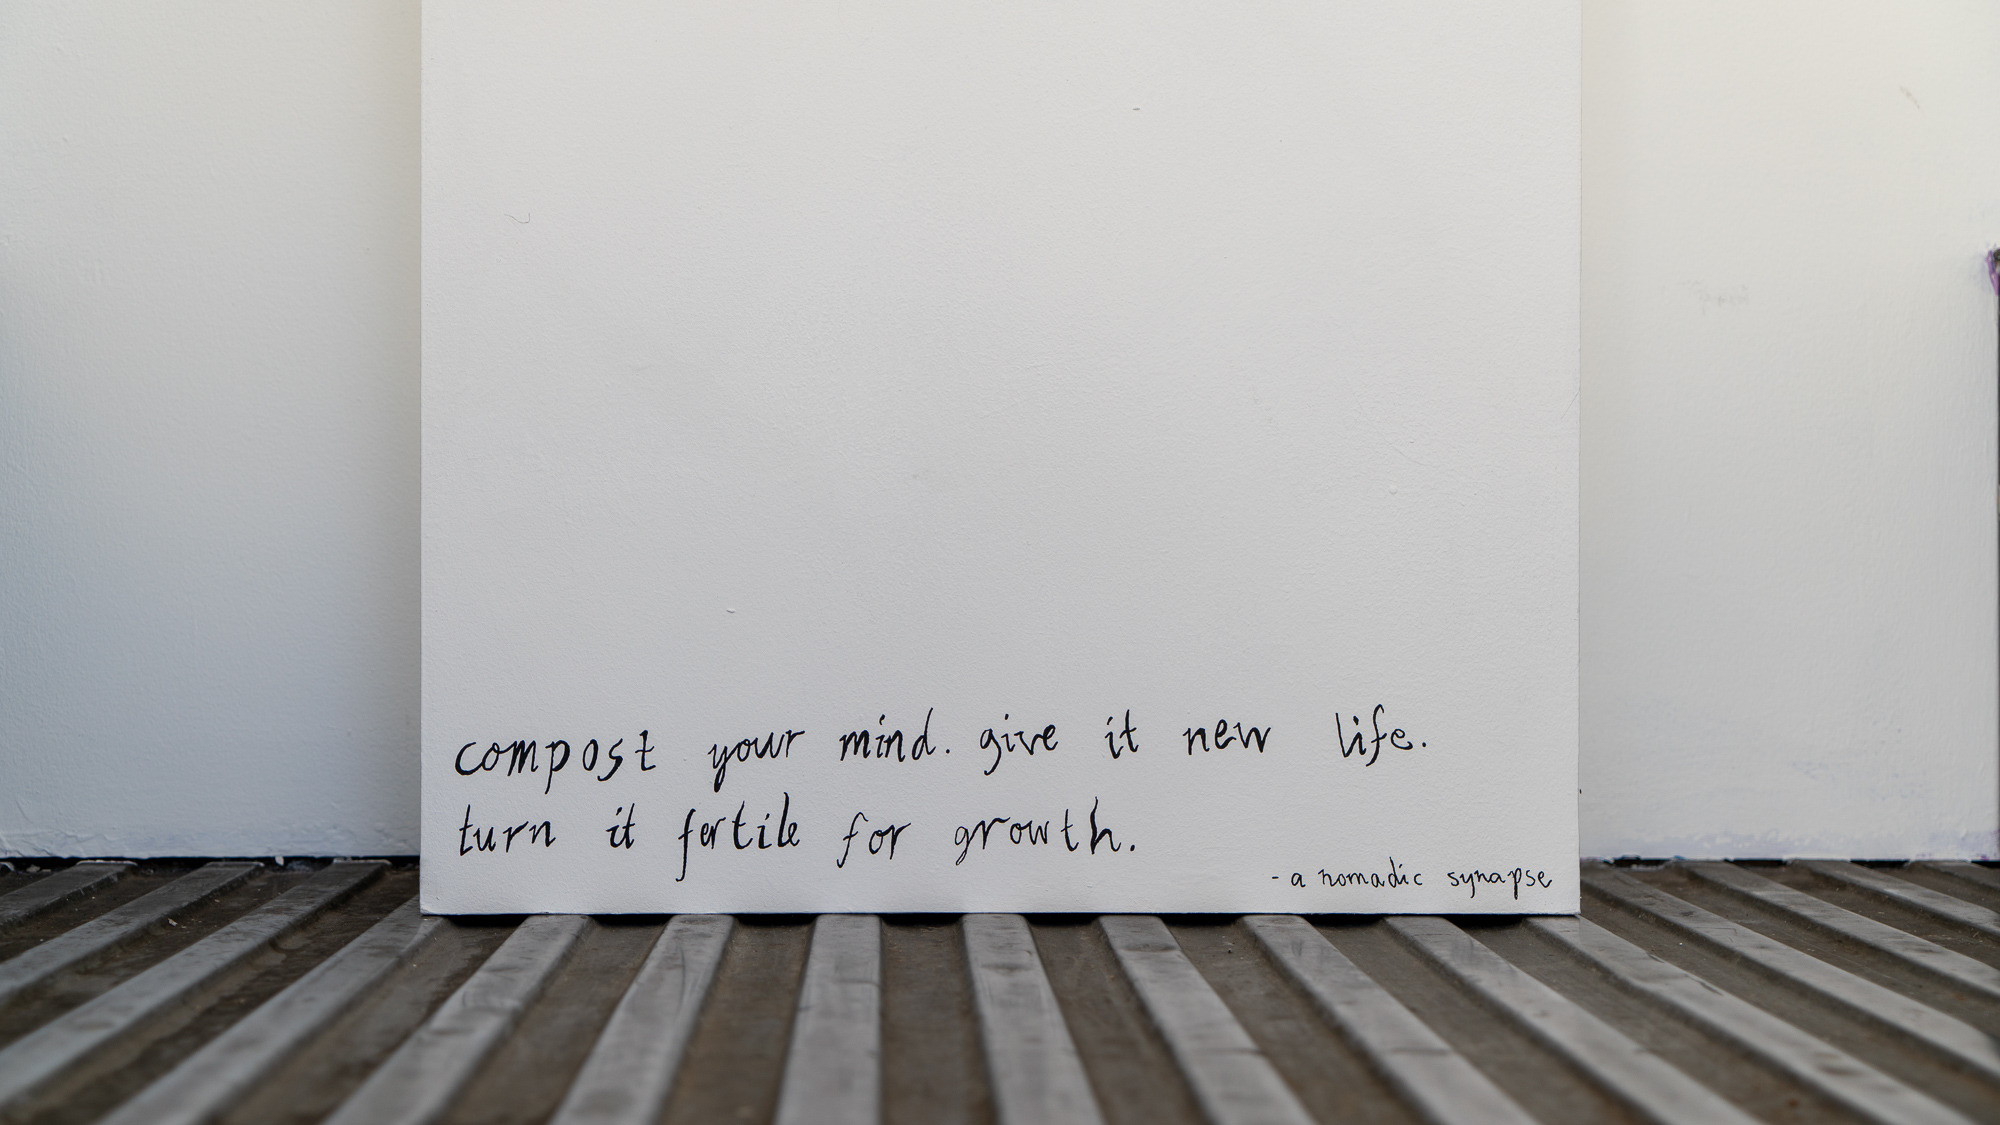 compost your mind. give it new life.
turn it fertile for growth.
- a nomadic synapse